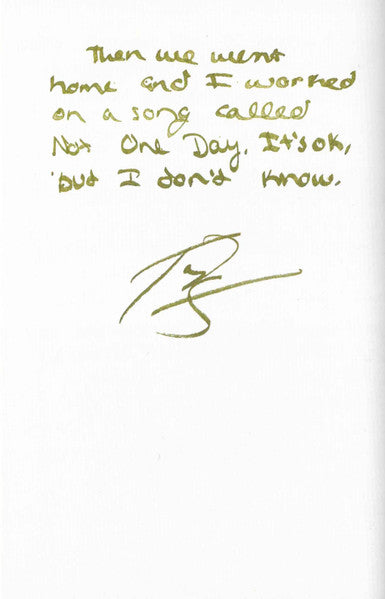 Then we went
home and I worked
on a song called
Not One Day. It's ok,
but I don't know.